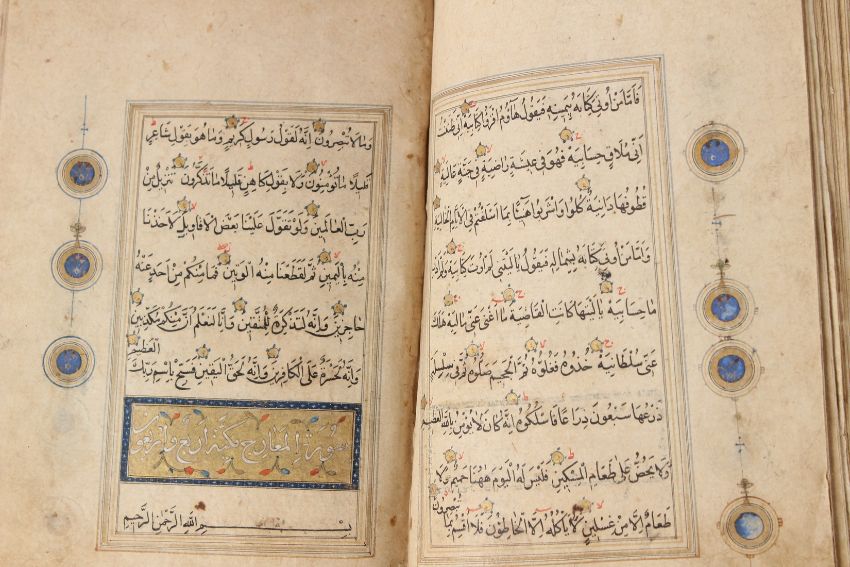 فَأَمَّا مَنْ أُوتِيَ كِتَابَهُ بِيَمِينِهِ فَيَقُولُ هَاؤُمُ اقْرَؤُا كِتَابِيَهْ إِنِّي ظَنَنْتُ
أَنِّي مُلَاقٍ حِسَابِيَهْ فَهُوَ فِي عِيشَةٍ رَاضِيَةٍ فِي جَنَّةٍ عَالِيَةٍ
قُطُوفُهَا دَانِيَةٌ كُلُوا وَاشْرَبُوا هَنِيئًا بِمَا أَسْلَفْتُمْ فِي الْأَيَّامِ الْخَالِيَةِ
وَأَمَّا مَنْ أُوتِيَ كِتَابَهُ بِشِمَالِهِ فَيَقُولُ يَا لَيْتَنِي لَمْ أُوتَ كِتَابِيَهْ وَلَمْ أَدْرِ
مَا حِسَابِيَهْ يَا لَيْتَهَا كَانَتِ الْقَاضِيَةَ مَا أَغْنَى عَنِّي مَالِيَهْ هَلَكَ
عَنِّي سُلْطَانِيَهْ خُذُوهُ فَغُلُّوهُ ثُمَّ الْجَحِيمَ صَلُّوهُ ثُمَّ فِي سِلْسِلَةٍ
ذَرْعُهَا سَبْعُونَ ذِرَاعًا فَاسْلُكُوهُ إِنَّهُ كَانَ لَا يُؤْمِنُ بِاللَّهِ الْعَظِيمِ
وَلَا يَحُضُّ عَلَى طَعَامِ الْمِسْكِينِ فَلَيْسَ لَهُ الْيَوْمَ هَهُنَا حَمِيمٌ وَلَا
طَعَامٌ إِلَّا مِنْ غِسْلِينٍ لَا يَأْكُلُهُ إِلَّا الْخَاطِؤُنَ فَلَا أُقْسِمُ بِمَا تُبْصِرُونَ
وَمَا لَا تُبْصِرُونَ إِنَّهُ لَقَوْلُ رَسُولٍ كَرِيمٍ وَمَا هُوَ بِقَوْلِ شَاعِرٍ
قَلِيلًا مَا تُؤْمِنُونَ وَلَا بِقَوْلِ كَاهِنٍ قَلِيلًا مَا تَذَكَّرُونَ تَنْزِيلٌ مِنْ
رَبِّ الْعَالَمِينَ وَلَوْ تَقَوَّلَ عَلَيْنَا بَعْضَ الْأَقَاوِيلِ لَأَخَذْنَا
مِنْهُ بِالْيَمِينِ ثُمَّ لَقَطَعْنَا مِنْهُ الْوَتِينَ فَمَا مِنْكُمْ مِنْ أَحَدٍ عَنْهُ
حَاجِزِينَ وَإِنَّهُ لَتَذْكِرَةٌ لِلْمُتَّقِينَ وَإِنَّا لَنَعْلَمُ أَنَّ مِنْكُمْ مُكَذِّبِينَ
وَإِنَّهُ لَحَسْرَةٌ عَلَى الْكَافِرِينَ وَإِنَّهُ لَحَقُّ الْيَقِينِ فَسَبِّحْ بِاسْمِ رَبِّكَ الْعَظِيمِ
سورة المعارج مكية أربع وأربعون
بِسْمِ اللَّهِ الرَّحْمَنِ الرَّحِيمِ